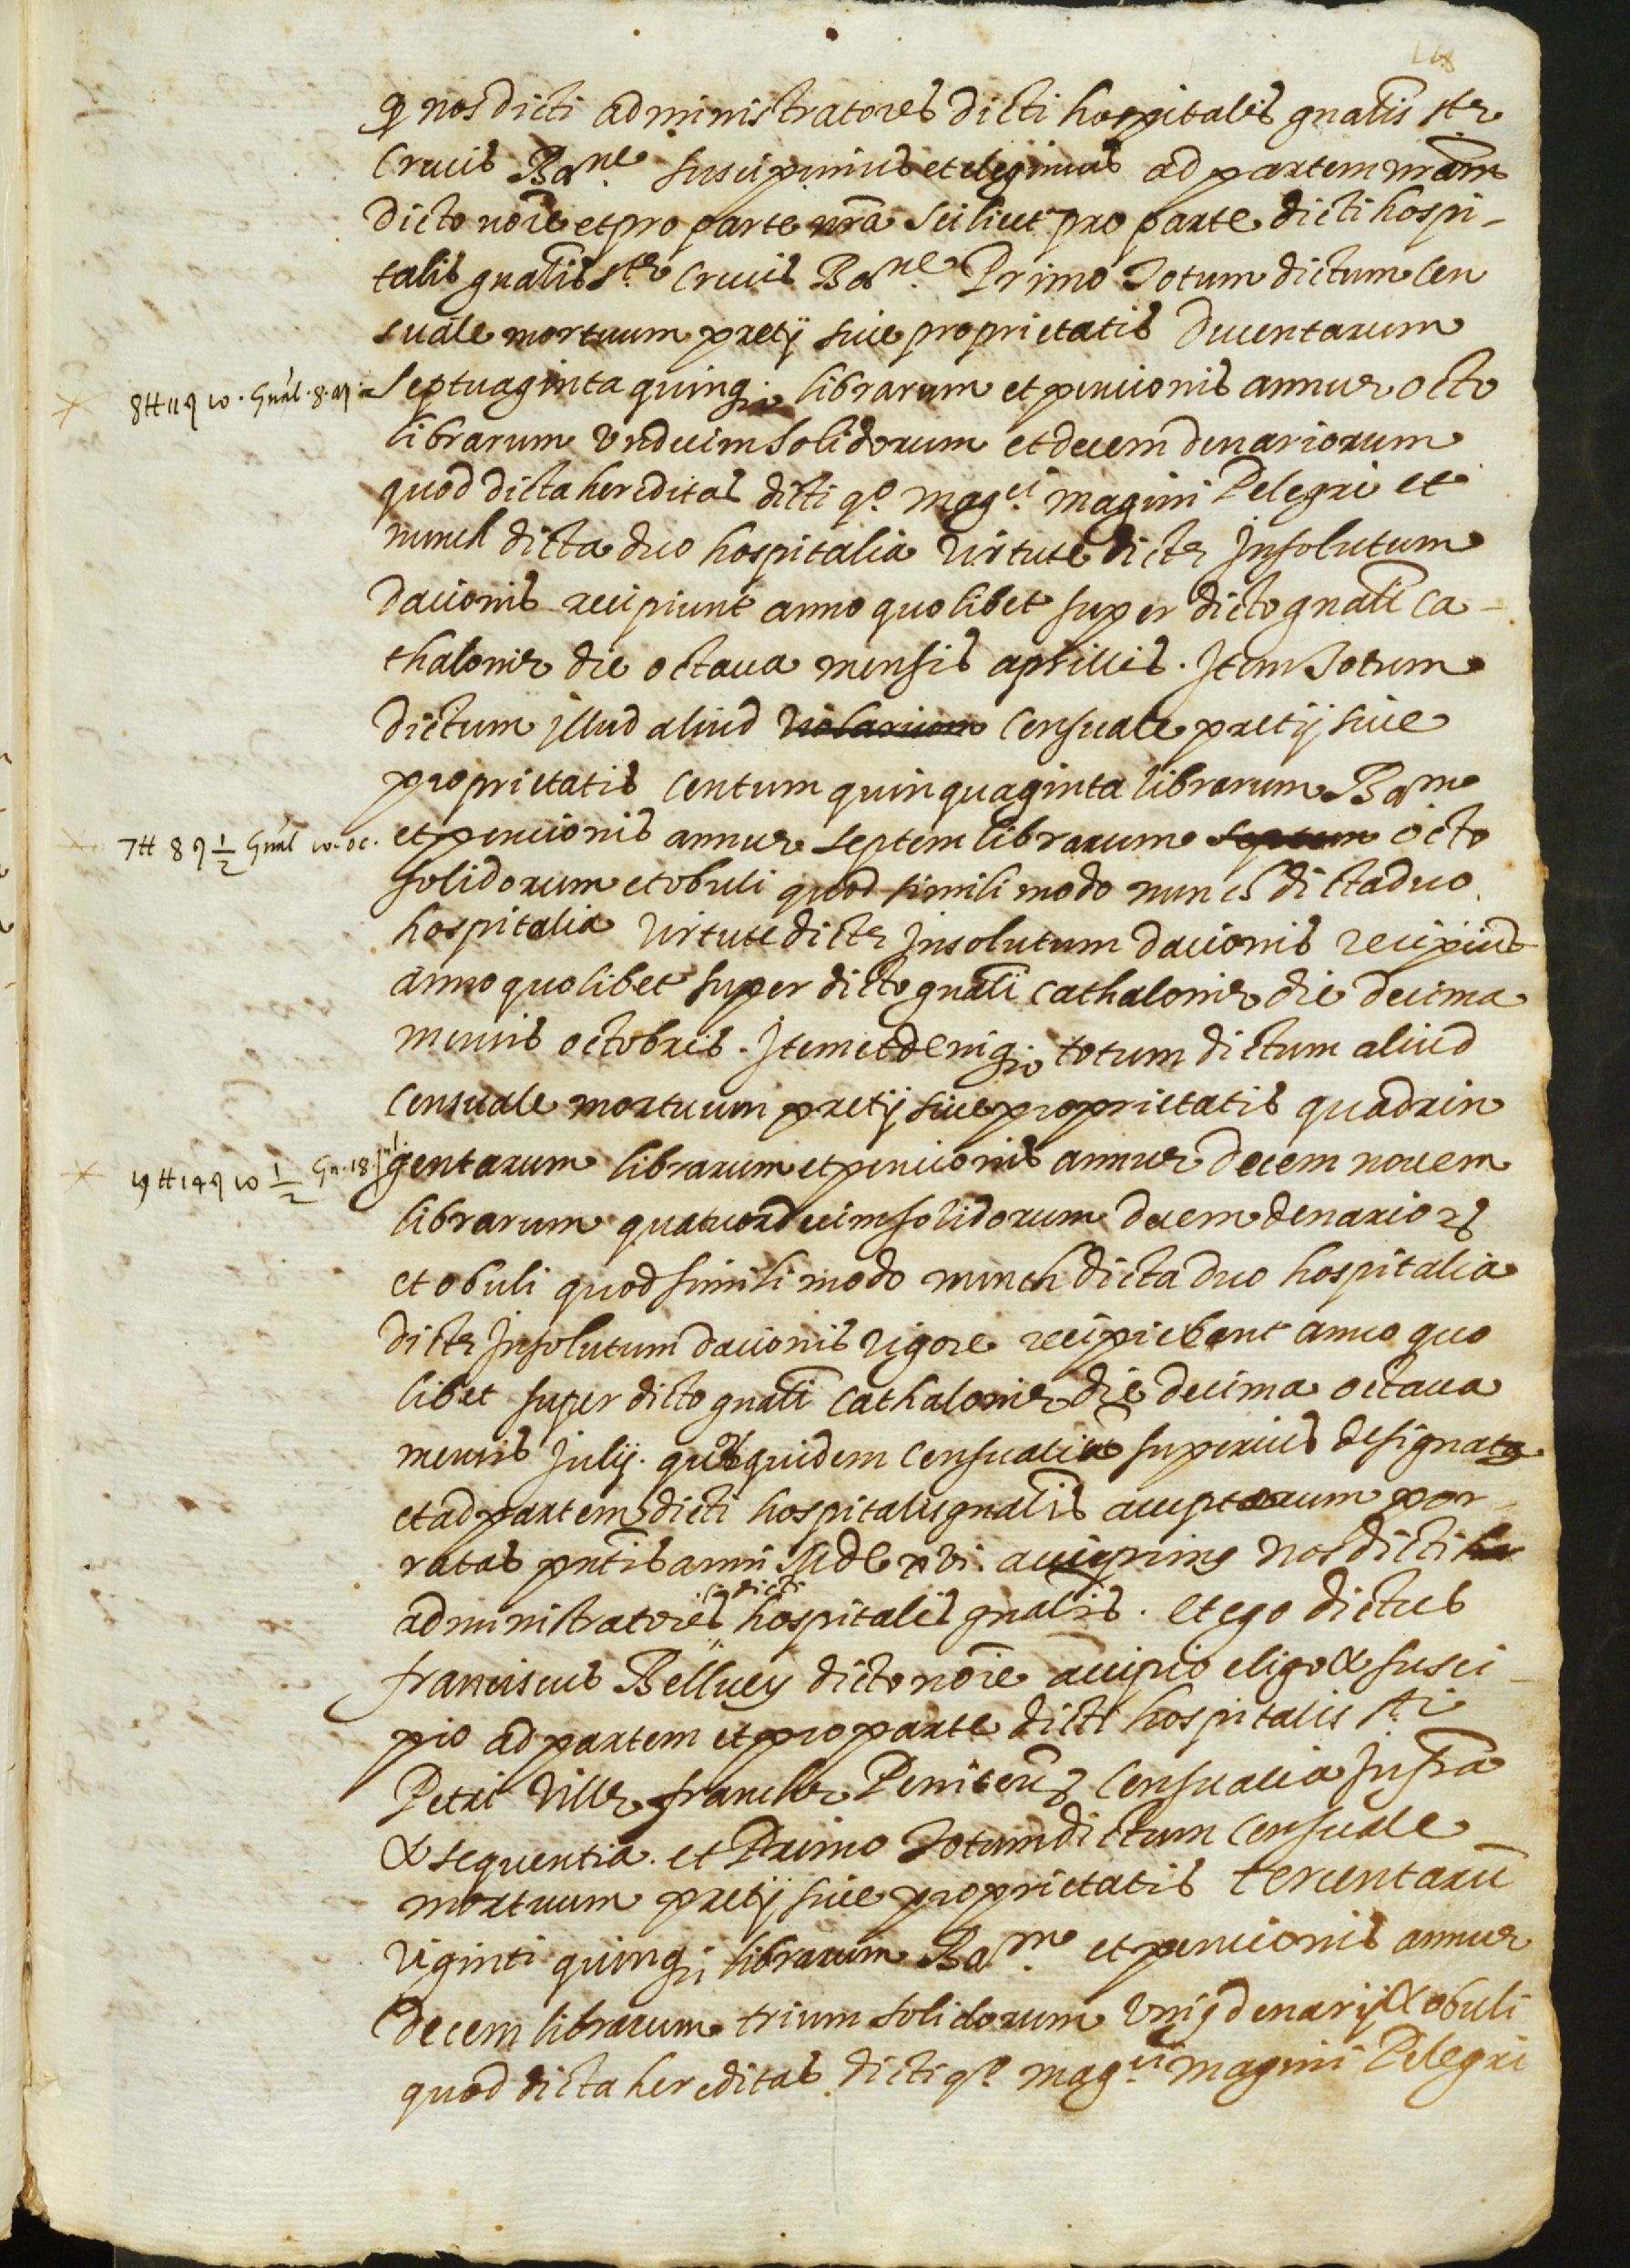 148
q nos dicti administratores dicti hospitalis gnalis ste
Crucis Bar.ne suscipimus et elegimus ad partem nram
dicto noie et pro parte nra scilicet pro parte dicti hospi-
talis gnalis ste Crucis Bar.ne Primo Totum dictum cen
suale mortuum pretij sive proprietatis ducentarum
8 ₶ 11 ς 10. Gnal. 8. ap.
septuaginta quinq; librarum et pencionis annue octo
librarum undecim solidorum et decem denariorum
quod dicta hereditas dicti qo. mag.ci magini Pelegri et
nunch dicta duo hospitalia virtute dicte Insolutum
dacionis recipiunt anno quolibet super dicto gnali Ca-
thalonie die octava mensis aprilis. Item Totum
dictum illud aliud violarium censuale pretij sive
proprietatis centum quinquaginta librarum Bar.ne
7 ₶ 8 ς 1/2 Gnal 10. oc.
et pencionis annue septem librarum septem octo
solidorum et obuli quod simili modo nunch dicta duo
hospitalia virtute dicte Insolutum dacionis recipiut
anno quolibet super dicto gnali cathalonie die decima
mensis octobris. Item et deniq; totum dictum aliud
censuale mortuum pretij sive proprietatis quadrin
19 ₶ 14 ς 10 1/2 Gn. 18. jul.
gentarum librarum et pencionis annue decem novem
librarum quatuordecim solidorum decem denarioꝝ
et obuli quod simili modo nunch dicta duo hospitalia
dicte Insolutum dacionis vigore recipiebant anno quo
libet super dicto gnali Cathalonie die decima octava
mensis Julij. que quidem censualia superius designata
et ad partem dicti hospitalis gnalis acceptarum per
ratas pntis anni MDLxvi. accepimus nos dicti
administratores dicti hospitalis gnalis. et ego dictus
franciscus Bellvey dicto noie accipio eligo & susci
pio ad partem et pro parte dicti hospitalis sti
Petri Ville franche Peniten̄ censualia infra
& sequentia. et Primo Totum dictum censuale
mortuum pretij sive proprietatis tercentarū
viginti quinq; librarum Bar.ne et pencionis annue
decem librarum trium solidorum unius denarij & obuli
quod dicta hereditas dicti qo. mag.ci magini Pelegri